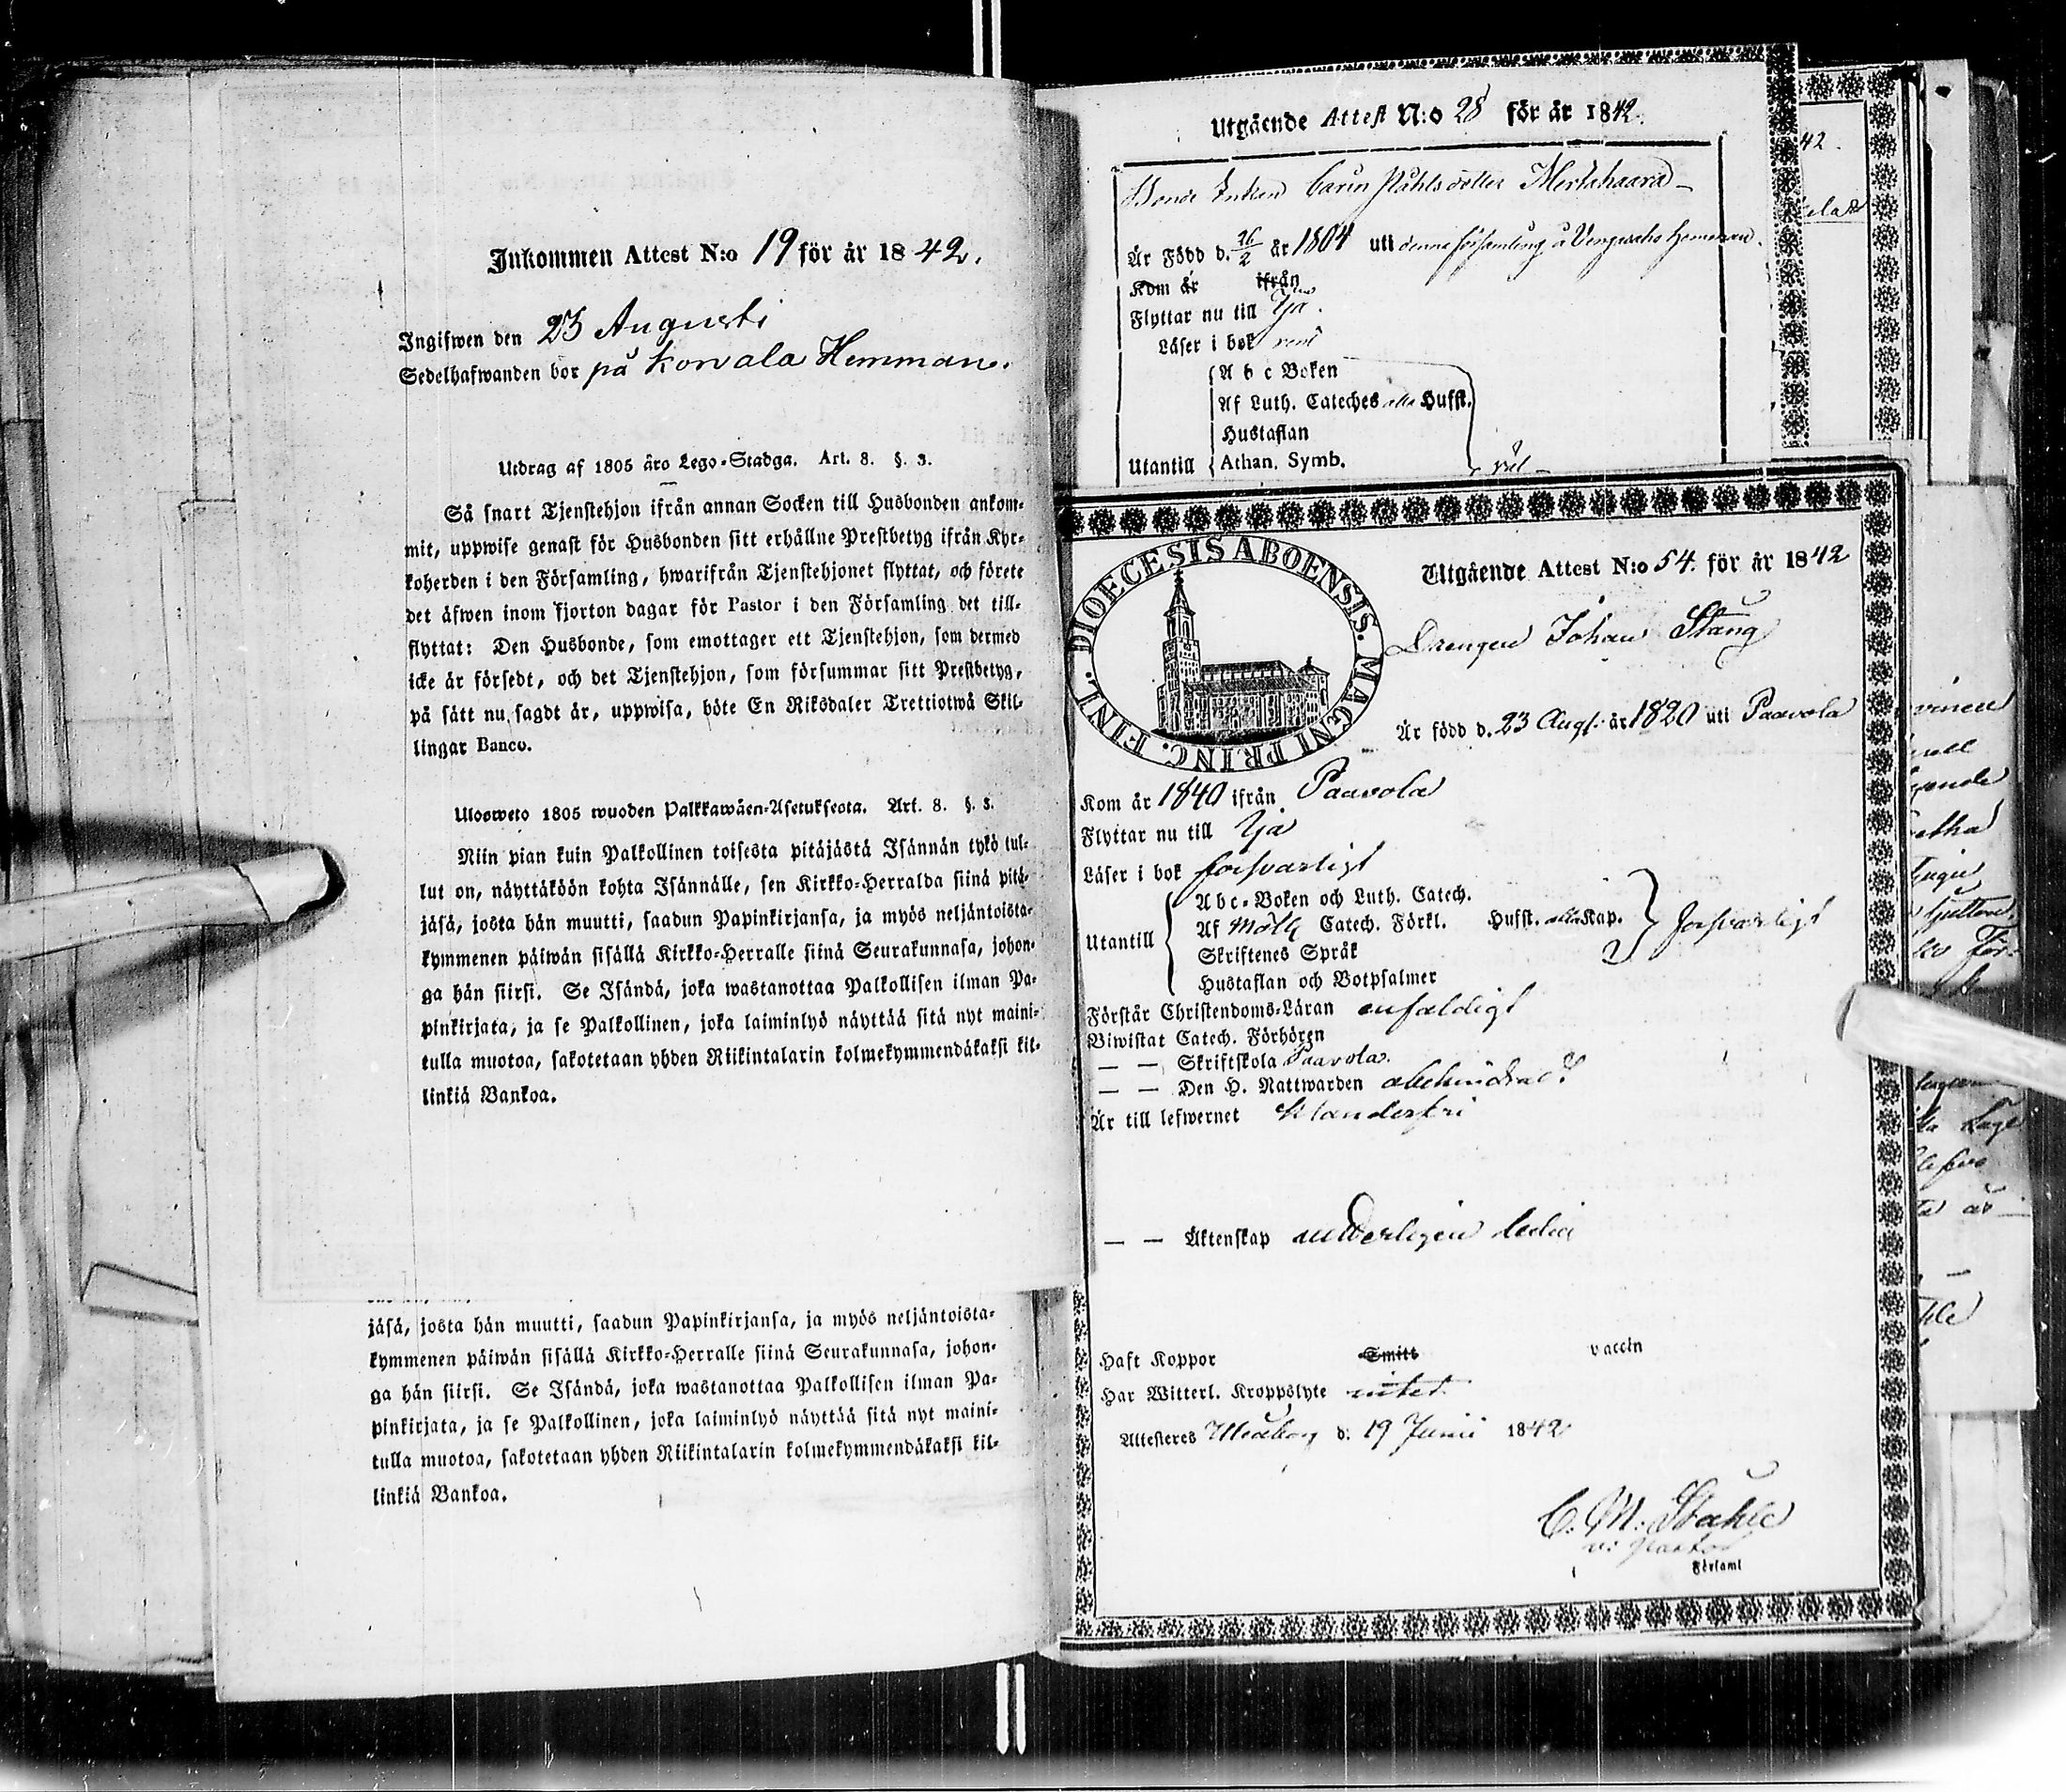 Inkommen Attest N:o 19 för år 1842.
Ingifwen den 23 Augusti
Sedelhafwanden bor på Korvala Hemman.
Utdrag af 1805 åro Lego-Stadga. Art. 8. §. 3.
Så snart Tjenstehjon ifrån annan Socken till Husbonden ankom-
mit, uppwise genast för Husbonden sitt erhållne Prestbetyg ifrån Kyr-
koherden i den Församling, hwarifrån Tjenstehjonet flyttat, och förete
det äfwen inom fjorton dagar för Pastor i den Församling det till-
flyttat: Den Husbonde, som emottager ett Tjenstehjon, som dermed
icke är försedt, och det Tjenstehjon, som försummar sitt Prestbetyg,
på sätt nu sagdt är, uppwisa, böte En Riksdaler Trettiotwå Skil-
lingar Banco.
Ulosweto 1805 wuoden Palkkawäen-Asetuksesta. Art. 8. §. 3.
Niin pian kuin Palkollinen toisesta pitäjästä Isännän tykö tul-
lut on, näyttäköön kohta Isännälle, sen Kirkko-Herralda siinä pitä-
jäsä, josta hän muutti, saadun Papinkirjansa, ja myös neljäntoista-
kymmenen päiwän sisällä Kirkko-Herralle siinä Seurakunnasa, johon-
ga hän siirsi. Se Isändä, joka wastanottaa Palkollisen ilman Pa-
pinkirjata, ja se Palkollinen, joka laiminlyö näyttää sitä nyt maini-
tulla muotoa, sakotetaan yhden Riikintalarin kolmekymmendäkaksi kil-
linkiä Bankoa.
jäsä, josta hän muutti, saadun Papinkirjansa, ja myös neljäntoista-
kymmenen päiwän sisällä Kirkko-Herralle siinä Seurakunnasa, johon-
ga hän siirsi. Se Isändä, joka wastanottaa Palkollisen ilman Pa-
pinkirjata, ja se Palkollinen, joka laiminlyö näyttää sitä nyt maini-
tulla muotoa, sakotetaan yhden Riikintalarin kolmekymmendäkaksi kil-
linkiä Bankoa.
Utgående Attest N:o 28 för år 1842.
Bonde Enkan Carin Ståhlsdotter Mertahaara
Är Född d. 26/2 år 1804 uti denna församling å Hemman.
Kom år ifrån
Flyttar nu till Ijå.
Läser i bok rent
A b c Boken
Af Luth. Cateches alla Hufst.
Hustaflan
Utantill Athan. Symb. väl
DIOECESIS ABOENSIS. MAGNI PRINC. FINL.
Utgående Attest N:o 54. för år 1842
Drengen Johan Stång
Är född d. 23 Aug. år 1820 uti Paavola
Kom år 1840 ifrån Paavola
Flyttar nu till Ijå
Läser i bok försvarligt
Abc-Boken och Luth. Catech.
Af Möll. Catech. Förkl. Hufst. alla Kap.
Utantill Skriftenes Språk försvarligt
Hustaflan och Botpsalmer
Förstår Christendoms-Läran enfaldigt
Biwistat Catech. Förhören
— — Skriftskola Paavola.
— — Den H. Nattwarden obehindrad
Är till lefwernet klanderfri
— — Äktenskap ledig
Haft Koppor Smitt vaccin
Har Witterl. Kroppslyte intet
Attesteres Uleåborg d. 19 Junii 1842
C. M. Ståhle
v: Pastor
Församl